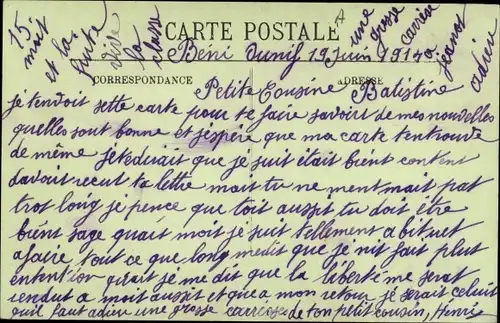 15 moit et la fuite vive la classe
CARTE POSTALE
une grosse
adieu
Béni Ounif 19 Juin 1914
CORRESPONDANCE
ADRESSE
Petite Cousine Batistine
je tendoit sette carte pour te faire savoirt de mes nouvelles
quelles sont bonne et j'espère que ma carte ten trouve
de même je te dirait que je suit était bient content
davoirt recut ta lettre mait tu ne ment mait pat
trot long je pence que toit aussit tu doit être
bient sage quait moit je suit tellement abituet
a faire tout ce que long me dit que je nit fait plus
entention je me dit que la liberté me serat
rendut a moit aussit et que a mon retour je serait celuit
quil faut adieu une grosse de ton petit cousin, Henri